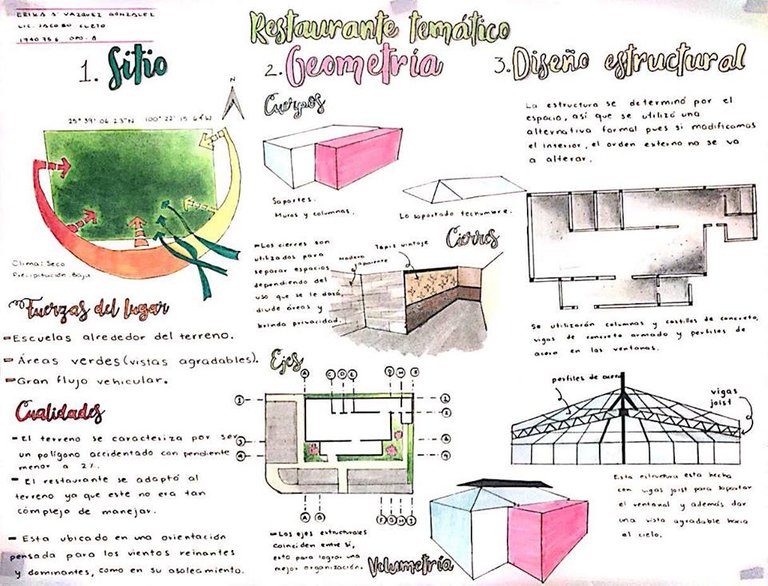 ERIKA S VAZQUEZ GONZALEZ
LIC. JACOBO CLETO
1740756 GPO. 8
Restaurante temático
1. Sitio
N
25° 39' 06.23"N 100° 22' 15.6"W
Clima: Seco
Precipitación Baja
Fuerzas del lugar
Escuelas alrededor del terreno.
Áreas verdes (vistas agradables).
Gran flujo vehicular.
Cualidades
- El terreno se caracteriza por ser
un polígono accidentado con pendiente
menor a 2%.
- El restaurante se adaptó al
terreno ya que este no era tan
complejo de manejar.
- Esta ubicado en una orientación
pensada para los vientos reinantes
y dominantes, como en su asoleamiento.
2. Geometría
Cuerpos
Soportes.
Muros y columnas.
Lo soportado techumbre.
Cierres
- Los cierres son
utilizados para
separar espacios
dependiendo del
uso que se le dará,
divide áreas y
brinda privacidad.
madera
aparente
Tapiz vintage
Ejes
A C D E
1
2
3
4
A B
F G H I
- Los ejes estructurales
coinciden entre sí,
esto para lograr una
mejor organización.
Volumetría
3. Diseño estructural
La estructura se determinó por el
espacio, así que se utilizó una
alternativa formal pues si modificamos
el interior, el orden externo no se va
a alterar.
Se utilizarán columnas y castillos de concreto,
vigas de concreto armado y perfiles de
acero en las ventanas.
perfiles de acero
vigas
joist
Esta estructura esta hecha
con vigas joist para soportar
el ventanal y además dar
una vista agradable hacia
el cielo.